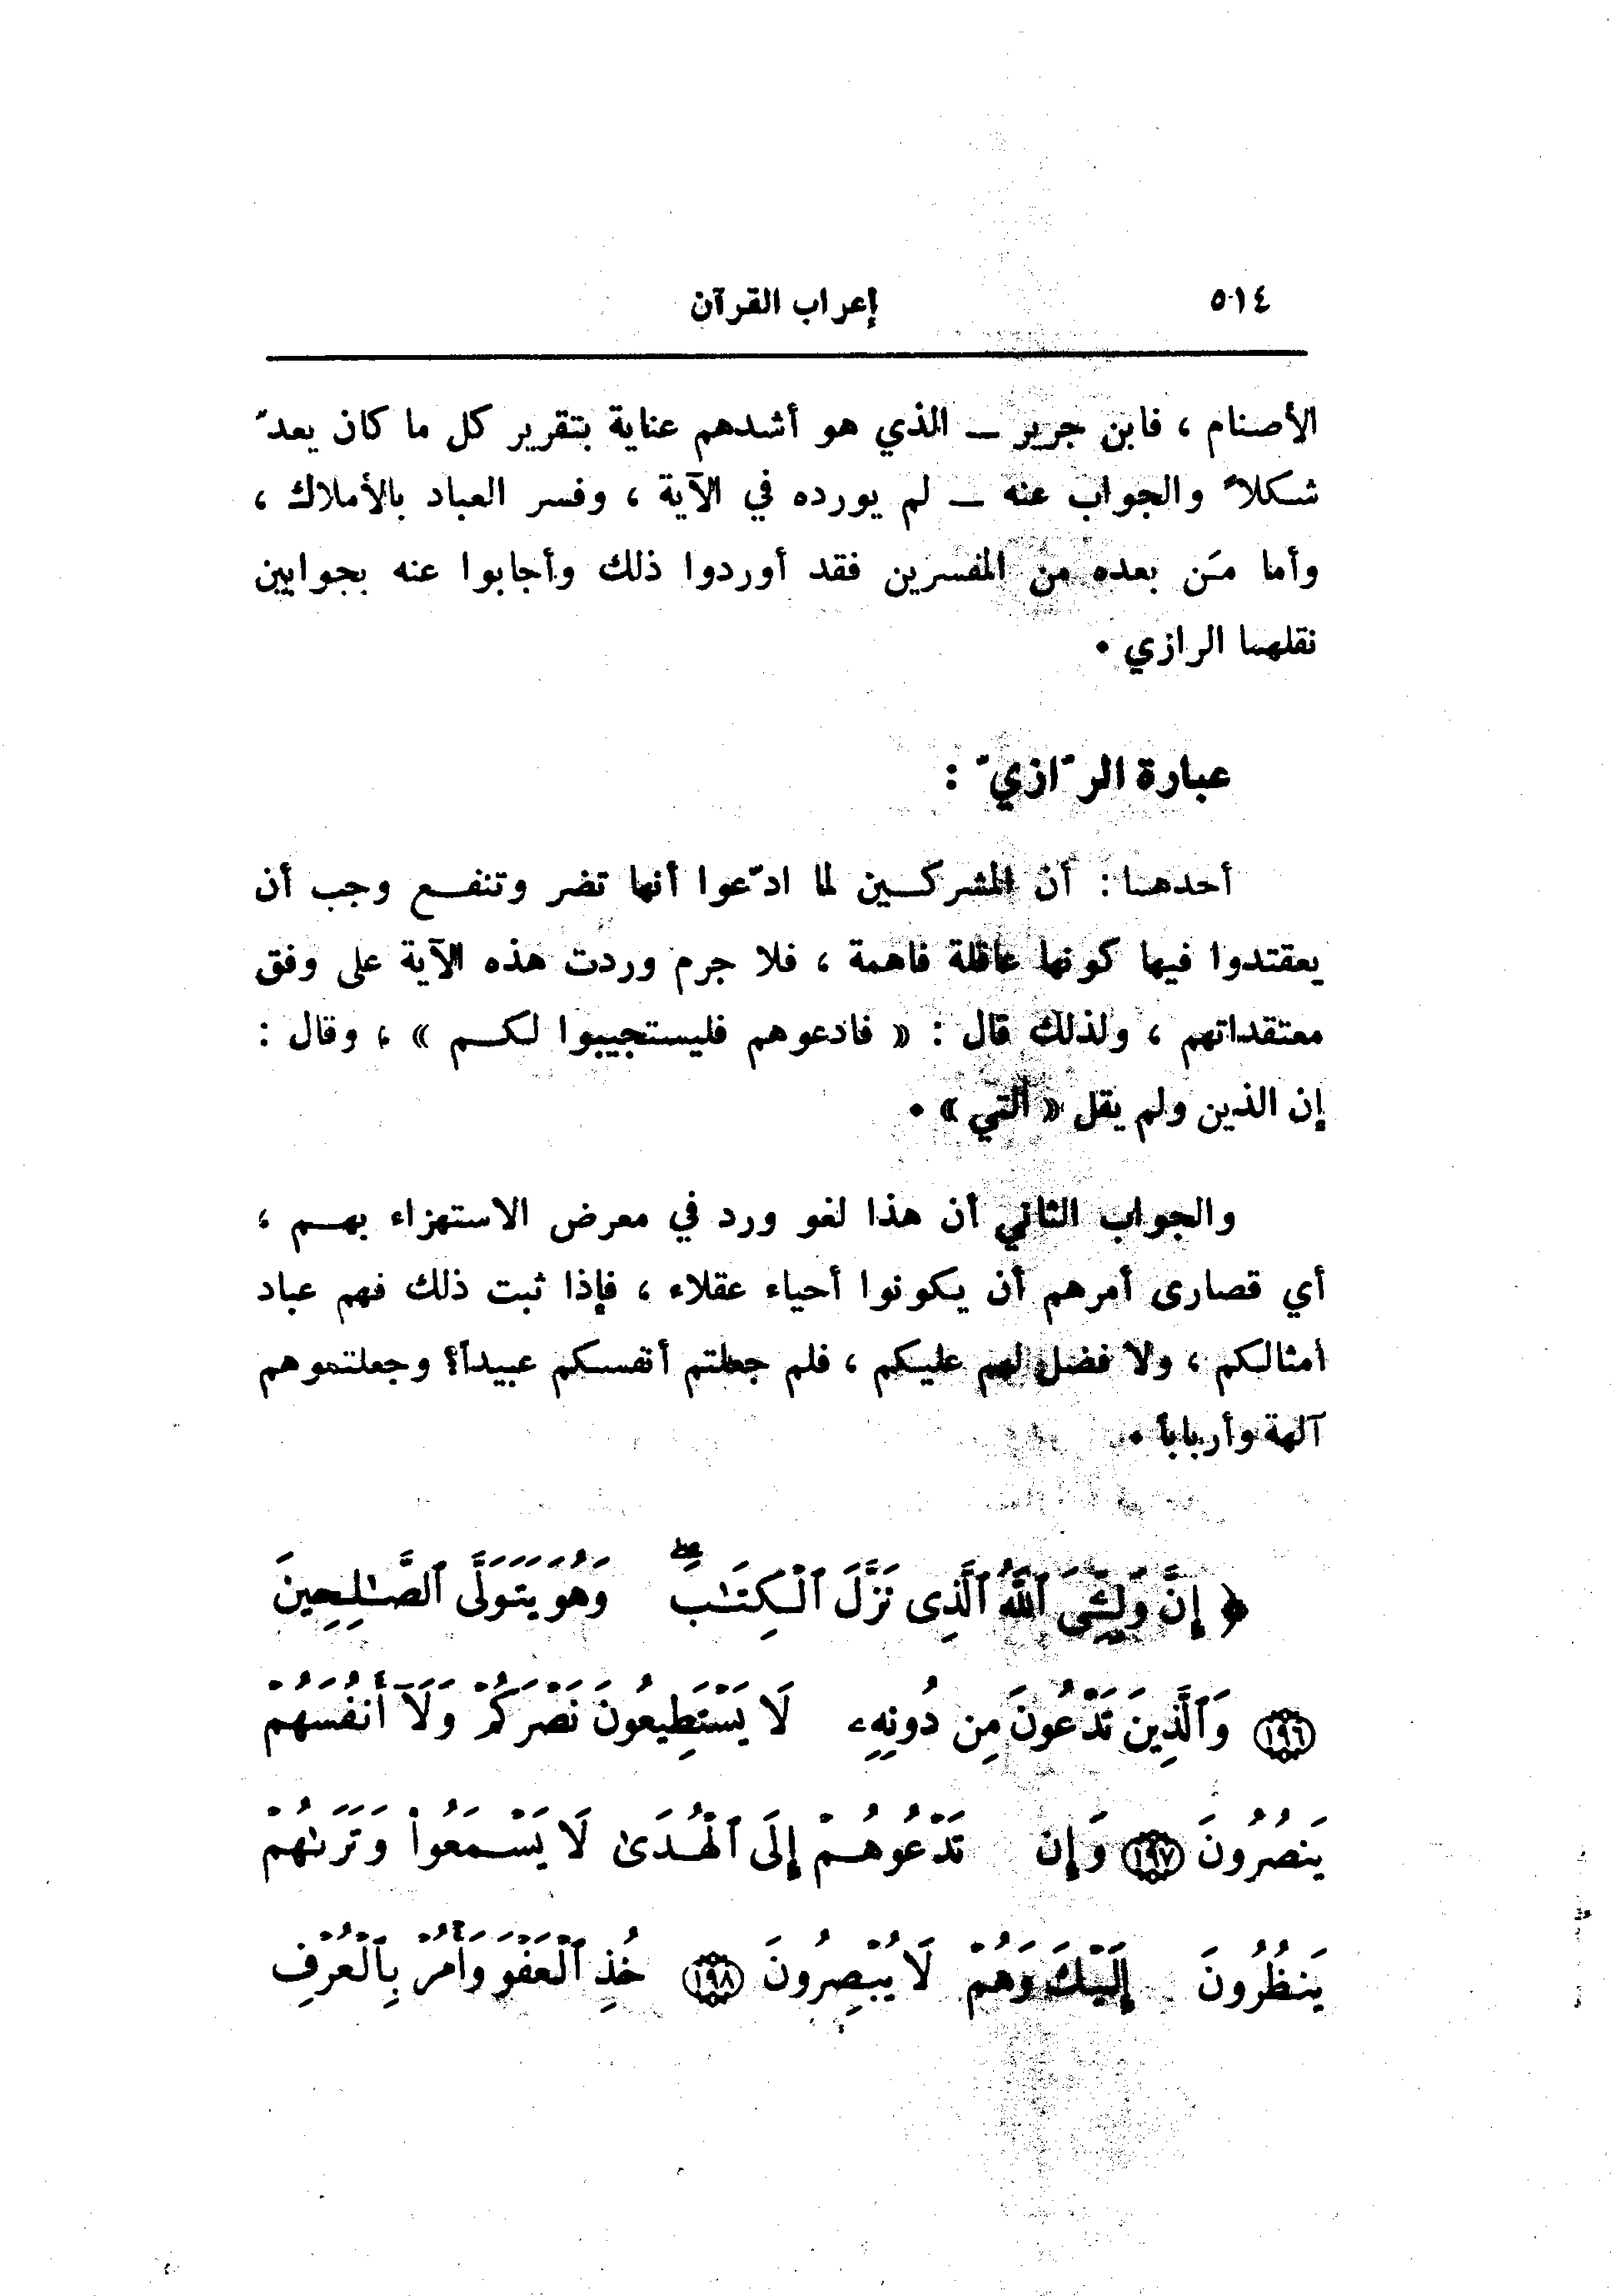 ٥١٤ إعراب القرآن
الأصنام ، فابن جرير ــ الذي هو أشدهم عناية بتقرير كل ما كان يعدّ
شكلاً والجواب عنه ــ لم يورده في الآية ، وفسر العباد بالأملاك ،
وأما مَن بعده من المفسرين فقد أوردوا ذلك وأجابوا عنه بجوابين
نقلهما الرازي ٠
عبارة الرّازيّ :
أحدهما : أن المشركين لما ادّعوا أنها تضر وتنفع وجب أن
يعقتدوا فيها كونها عاقلة فاهمة ، فلا جرم وردت هذه الآية على وفق
معتقداتهم ، ولذلك قال : « فادعوهم فليستجيبوا لكم » ، وقال :
إن الذين ولم يقل « التي » ٠
والجواب الثاني أن هذا لغو ورد في معرض الاستهزاء بهم ،
أي قصارى أمرهم أن يكونوا أحياء عقلاء ، فإذا ثبت ذلك فهم عباد
أمثالكم ، ولا فضل لهم عليكم ، فلم جعلتم أنفسكم عبيداً؟ وجعلتموهم
آلهة وأرباباً ٠
﴿ إِنَّ وَلِـِّۧىَ ٱللَّهُ ٱلَّذِى نَزَّلَ ٱلْكِتَـٰبَ ۖ وَهُوَ يَتَوَلَّى ٱلصَّـٰلِحِينَ
﴿١٩٦﴾ وَٱلَّذِينَ تَدْعُونَ مِن دُونِهِۦ لَا يَسْتَطِيعُونَ نَصْرَكُمْ وَلَآ أَنفُسَهُمْ
يَنصُرُونَ ﴿١٩٧﴾ وَإِن تَدْعُوهُمْ إِلَى ٱلْهُدَىٰ لَا يَسْمَعُوا۟ وَتَرَىٰهُمْ
يَنظُرُونَ إِلَيْكَ وَهُمْ لَا يُبْصِرُونَ ﴿١٩٨﴾ خُذِ ٱلْعَفْوَ وَأْمُرْ بِٱلْعُرْفِ